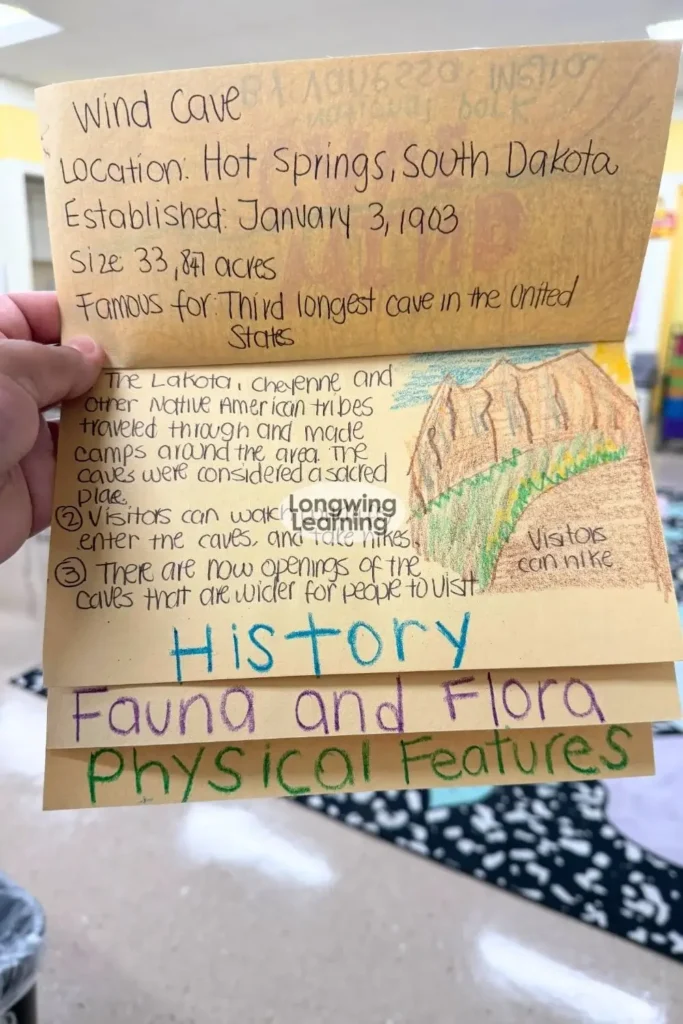 Wind Cave
Location: Hot Springs, South Dakota
Established: January 3, 1903
Size: 33,847 acres
Famous for: Third longest cave in the United
States
The Lakota, Cheyenne and
other Native American tribes
traveled through and made
camps around the area. The
caves were considered a sacred
place.
② Visitors can
enter the caves, and take hikes.
③ There are now openings of the
caves that are wider for people to visit
Longwing
Learning
Visitors
can hike
History
Fauna and Flora
Physical Features